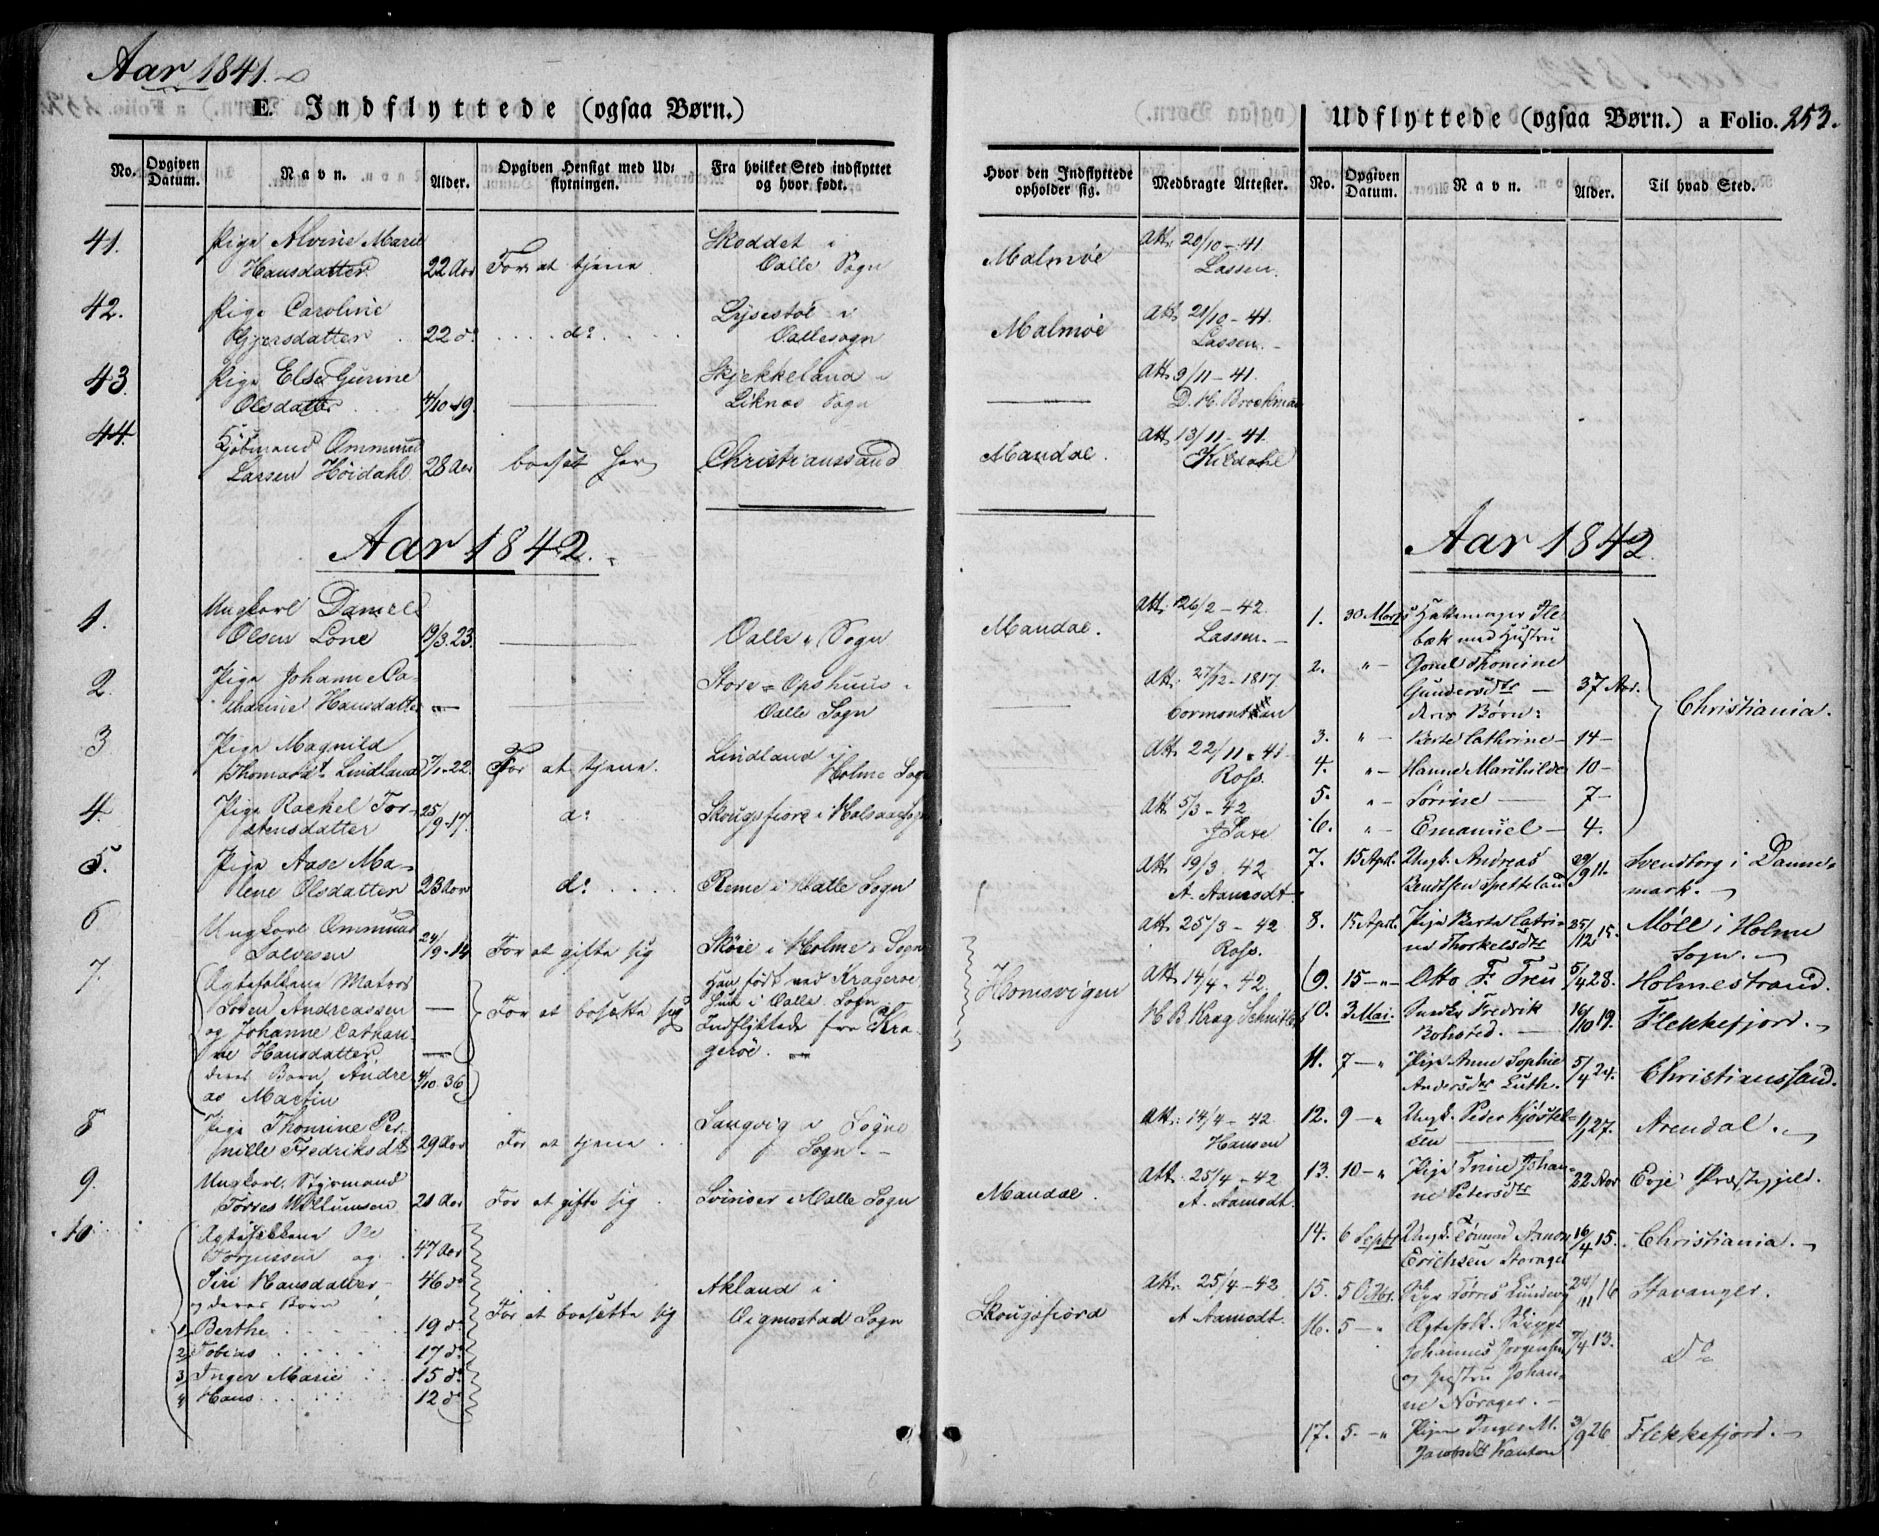 Aar 1841.
E. Indflyttede (ogsaa Børn.)
No. Opgiven Datum. Navn. Alder. Opgiven Hensigt med Udflytningen. Fra hvilket Sted indflyttet og hvor født.
Hvor den Indflyttede opholder sig. Medbragte Attester.
41. Pige Alvine Marie
Hansdatter 22 Aar For at tjene Skoddet i
Valle Sogn Malmøe Att. 20/10 - 41.
Lassen.
42. Pige Caroline
Gjersdatter 22 do. do. Lysestøl i
Valle sogn Malmøe Att. 21/10 - 41.
Lassen.
43. Pige Else Gurine
Olsdatter 4/10 19. Skjekkeland i
Liknes Sogn Att. 9/11 - 41.
D. H. Brockman
44. Kjøbmand Ommund
Larsen Høidahl 28 Aar bosat her Christianssand Mandal. Att. 13/11 - 41.
Kildahl
Aar 1842.
1. Ungkarl Daniel
Olsen Lone 19/3. 23. Valle Sogn Mandal. Att. 26/2 - 42.
Lassen.
2. Pige Johanne Ca-
tharine Hansdatter Store Opshuus
Valle Sogn Att. 27/12 - 1817.
3 Pige Magnild
Thomasdt Lindland 7/1. 22. For at tjene. Lindland i
Holme Sogn Att. 22/11 - 41
Ross.
4 Pige Rachel Tor-
stensdatter 25/9. 17. do: Skougsfiord i Halsaa sogn Att. 5/3 - 42
5. Pige Aase Ma-
lene Olsdatter 23 Aar do: Reme i Valle Sogn Att. 19/3 42
A. Aamodt.
6 Ungkarl Ommund
Salvesen 24/9. 14 For at gifte sig Skøie i Holme Sogn Att. 25/3 - 42
Ross.
7 Ægtefolkene Matros
Søren Andreassen
og Johanne Cathari-
ne Hansdatter,
deres Barn Andre-
as Martin 4/10 36 For at bosætte sig Han født ved Kragerøe
Hun i Valle Sogn
Indflyttede fra Kra-
gerøe. Homsvigen Att. 14/4 - 42.
H B Krag
8 Pige Thomine Per-
nille Fredriksdt 29 Aar For at tjene Langvig i Søgne
Sogn. Att. 14/4 - 42
Hansen
9. Ungkarl Styrmand
Torres Willumsen 21 Aar For at gifte sig Svinøer i Halse Sogn Mandal. Att. 25/4 - 42
A. Aamodt.
10 Ægtefolkene Ole
Torjussen og 47 Aar
Siri Hansdatter 46 do
og deres Børn
1 Berthe 19 do
2 Tobias 17 do
3 Inger Marie 15 do
4 Hans 12 do
For at bosætte sig Akland i
Oigmostad Sogn Skougsfiord Att. 25/4 - 42
A Aamodt.
Udflyttede (ogsaa Børn.) a Folio. 253.
No. Opgiven Datum. Navn. Alder. Til hvad Sted.
Aar 1842.
1. 30 Marts Hattemager
med Hustru
2. " - Thomine
Gundersdtr - 37 Aar.
deres Børn:
3. " - Berte Cathrine - 14 -
4. " - Hanne Marthilde 10 -
5. " - Sørine - 7 -
6. " - Emanuel - 4.
Christiania.
7. 15 Apl. Ungk. Andreas
Bendtsen 29/9 11. Svendborg i Danne-
mark.
8. 15 Apl. Pige Berte Catri-
ne Thorkelsdtr 25/12 15. Møll i Holme
Sogn.
9. 15 - " - Otto F. Treu 5/4 28. Holmestrand.
10. 3 Mai. Fredrik
- 16/10 19. Flekkefjord.
11. 7 - " Pige Anne Sophie
Andersdtr Luth. 5/4 24. Christianssand.
12. 9 - " Ungk. Peder Kjøstel-
sen 1/1 27. Arendal.
13. 10 - " Pige Trine Johan-
ne Petersdtr 22 Aar Evje Præstegjeld.
14. 6 Septr Ungk. Tønnes
Erichsen 16/4 15. Christiania.
15. 5 Octbr. Pige Tørres 24/11 16 Stavanger.
16. 5 - " Ægtefolk.
Johannes Jørgensen
og Hustru Johan-
ne Nørager. 7/4 13. Do
17. 5. - " Pigen Inger M.
Jacobsdt 3/9 26 Flekkefjord.